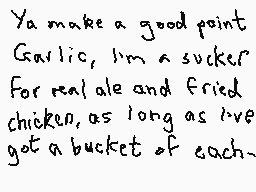 Ya make a good point
Garlic, I'm a sucker
for real ale and fried
chicken, as long as I've
got a bucket of each~